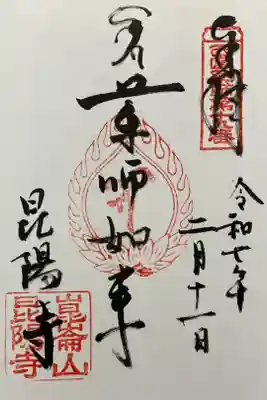 奉拝
令和七年
二月十一日
薬師如来
昆陽寺
崑崙山
昆陽寺